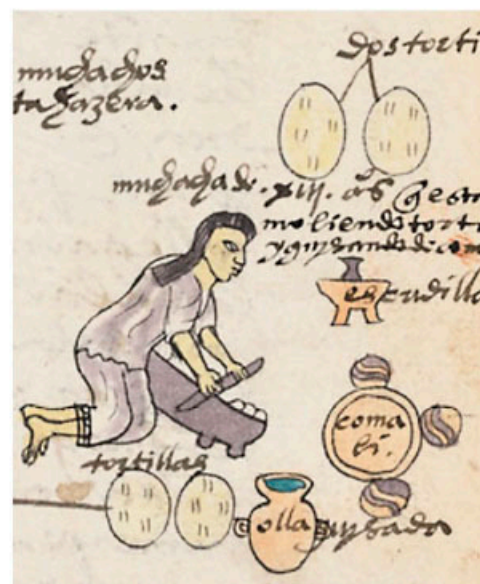 muchachos
tazazera.
dos torti
muchacha de . xiii. as q esta
moliendo torti
y guisando de com
escudilla
comali.
tortillas
olla